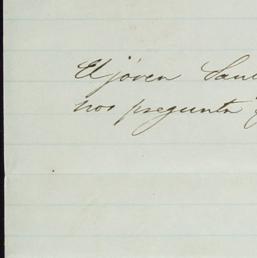 El jóven
nos pregunta